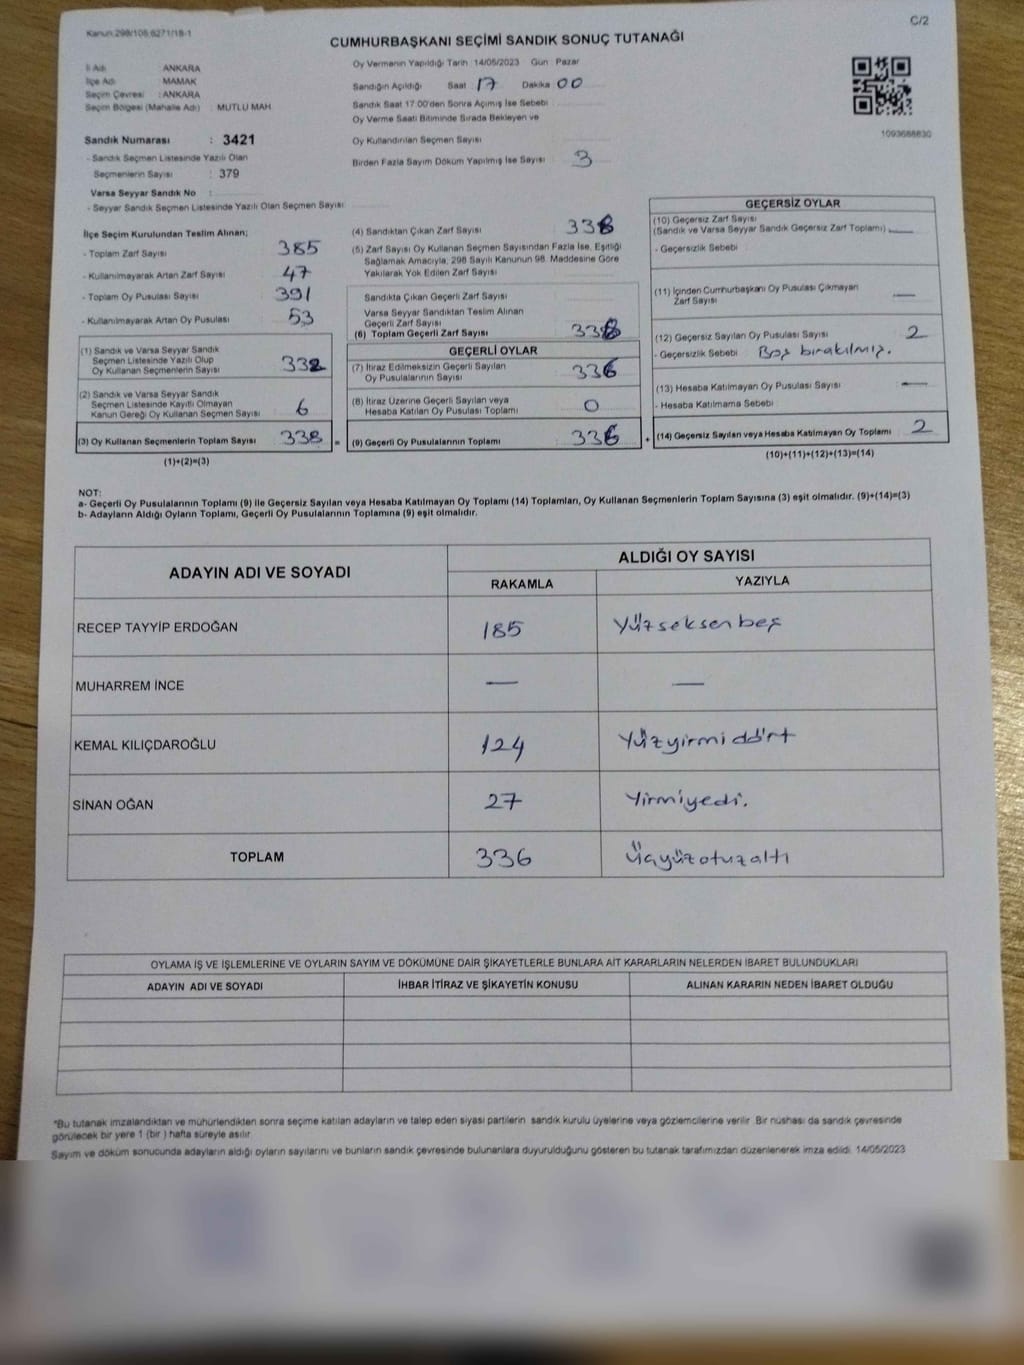 Kanun:298/105;6271/18-1
C/2
CUMHURBAŞKANI SEÇİMİ SANDIK SONUÇ TUTANAĞI
İl Adı : ANKARA
İlçe Adı : MAMAK
Seçim Çevresi : ANKARA
Seçim Bölgesi (Mahalle Adı) : MUTLU MAH.
Sandık Numarası : 3421
- Sandık Seçmen Listesinde Yazılı Olan
Seçmenlerin Sayısı : 379
Varsa Seyyar Sandık No :
- Seyyar Sandık Seçmen Listesinde Yazılı Olan Seçmen Sayısı:
Oy Vermenin Yapıldığı Tarih :14/05/2023 Gün : Pazar
Sandığın Açıldığı Saat 17 Dakika 00
Sandık Saat 17:00'den Sonra Açılmış İse Sebebi
Oy Verme Saati Bitiminde Sırada Bekleyen ve
Oy Kullandırılan Seçmen Sayısı
Birden Fazla Sayım Döküm Yapılmış İse Sayısı 3
1093688830
İlçe Seçim Kurulundan Teslim Alınan;
- Toplam Zarf Sayısı 385
- Kullanılmayarak Artan Zarf Sayısı 47
- Toplam Oy Pusulası Sayısı 391
- Kullanılmayarak Artan Oy Pusulası 53
(1) Sandık ve Varsa Seyyar Sandık
Seçmen Listesinde Yazılı Olup
Oy Kullanan Seçmenlerin Sayısı 332
(2) Sandık ve Varsa Seyyar Sandık
Seçmen Listesinde Kayıtlı Olmayan
Kanun Gereği Oy Kullanan Seçmen Sayısı 6
(3) Oy Kullanan Seçmenlerin Toplam Sayısı 338 =
(1)+(2)=(3)
(4) Sandıktan Çıkan Zarf Sayısı 338
(5) Zarf Sayısı Oy Kullanan Seçmen Sayısından Fazla İse, Eşitliği
Sağlamak Amacıyla, 298 Sayılı Kanunun 98. Maddesine Göre
Yakılarak Yok Edilen Zarf Sayısı
Sandıkta Çıkan Geçerli Zarf Sayısı
Varsa Seyyar Sandıktan Teslim Alınan
Geçerli Zarf Sayısı
(6) Toplam Geçerli Zarf Sayısı 338
GEÇERLİ OYLAR
(7) İtiraz Edilmeksizin Geçerli Sayılan
Oy Pusulalarının Sayısı 336
(8) İtiraz Üzerine Geçerli Sayılan veya
Hesaba Katılan Oy Pusulası Toplamı 0
(9) Geçerli Oy Pusulalarının Toplamı 336 +
GEÇERSİZ OYLAR
(10) Geçersiz Zarf Sayısı
(Sandık ve Varsa Seyyar Sandık Geçersiz Zarf Toplamı) —
- Geçersizlik Sebebi
(11) İçinden Cumhurbaşkanı Oy Pusulası Çıkmayan
Zarf Sayısı —
(12) Geçersiz Sayılan Oy Pusulası Sayısı 2
- Geçersizlik Sebebi Boş bırakılmış.
(13) Hesaba Katılmayan Oy Pusulası Sayısı —
- Hesaba Katılmama Sebebi
(14) Geçersiz Sayılan veya Hesaba Katılmayan Oy Toplamı 2
(10)+(11)+(12)+(13)=(14)
NOT:
a- Geçerli Oy Pusulalarının Toplamı (9) ile Geçersiz Sayılan veya Hesaba Katılmayan Oy Toplamı (14) Toplamları, Oy Kullanan Seçmenlerin Toplam Sayısına (3) eşit olmalıdır. (9)+(14)=(3)
b- Adayların Aldığı Oyların Toplamı, Geçerli Oy Pusulalarının Toplamına (9) eşit olmalıdır.
ADAYIN ADI VE SOYADI
ALDIĞI OY SAYISI
RAKAMLA YAZIYLA
RECEP TAYYİP ERDOĞAN 185 Yüzseksenbeş
MUHARREM İNCE — —
KEMAL KILIÇDAROĞLU 124 Yüzyirmi dört
SİNAN OĞAN 27 Yirmiyedi.
TOPLAM 336 Üçyüzotuzaltı
OYLAMA İŞ VE İŞLEMLERİNE VE OYLARIN SAYIM VE DÖKÜMÜNE DAİR ŞİKAYETLERLE BUNLARA AİT KARARLARIN NELERDEN İBARET BULUNDUKLARI
ADAYIN ADI VE SOYADI İHBAR İTİRAZ VE ŞİKAYETİN KONUSU ALINAN KARARIN NEDEN İBARET OLDUĞU
*Bu tutanak imzalandıktan ve mühürlendikten sonra seçime katılan adayların ve talep eden siyasi partilerin sandık kurulu üyelerine veya gözlemcilerine verilir. Bir nüshası da sandık çevresinde
görülecek bir yere 1 (bir ) hafta süreyle asılır.
Sayım ve döküm sonucunda adayların aldığı oyların sayılarını ve bunların sandık çevresinde bulunanlara duyurulduğunu gösteren bu tutanak tarafımızdan düzenlenerek imza edildi. 14/05/2023